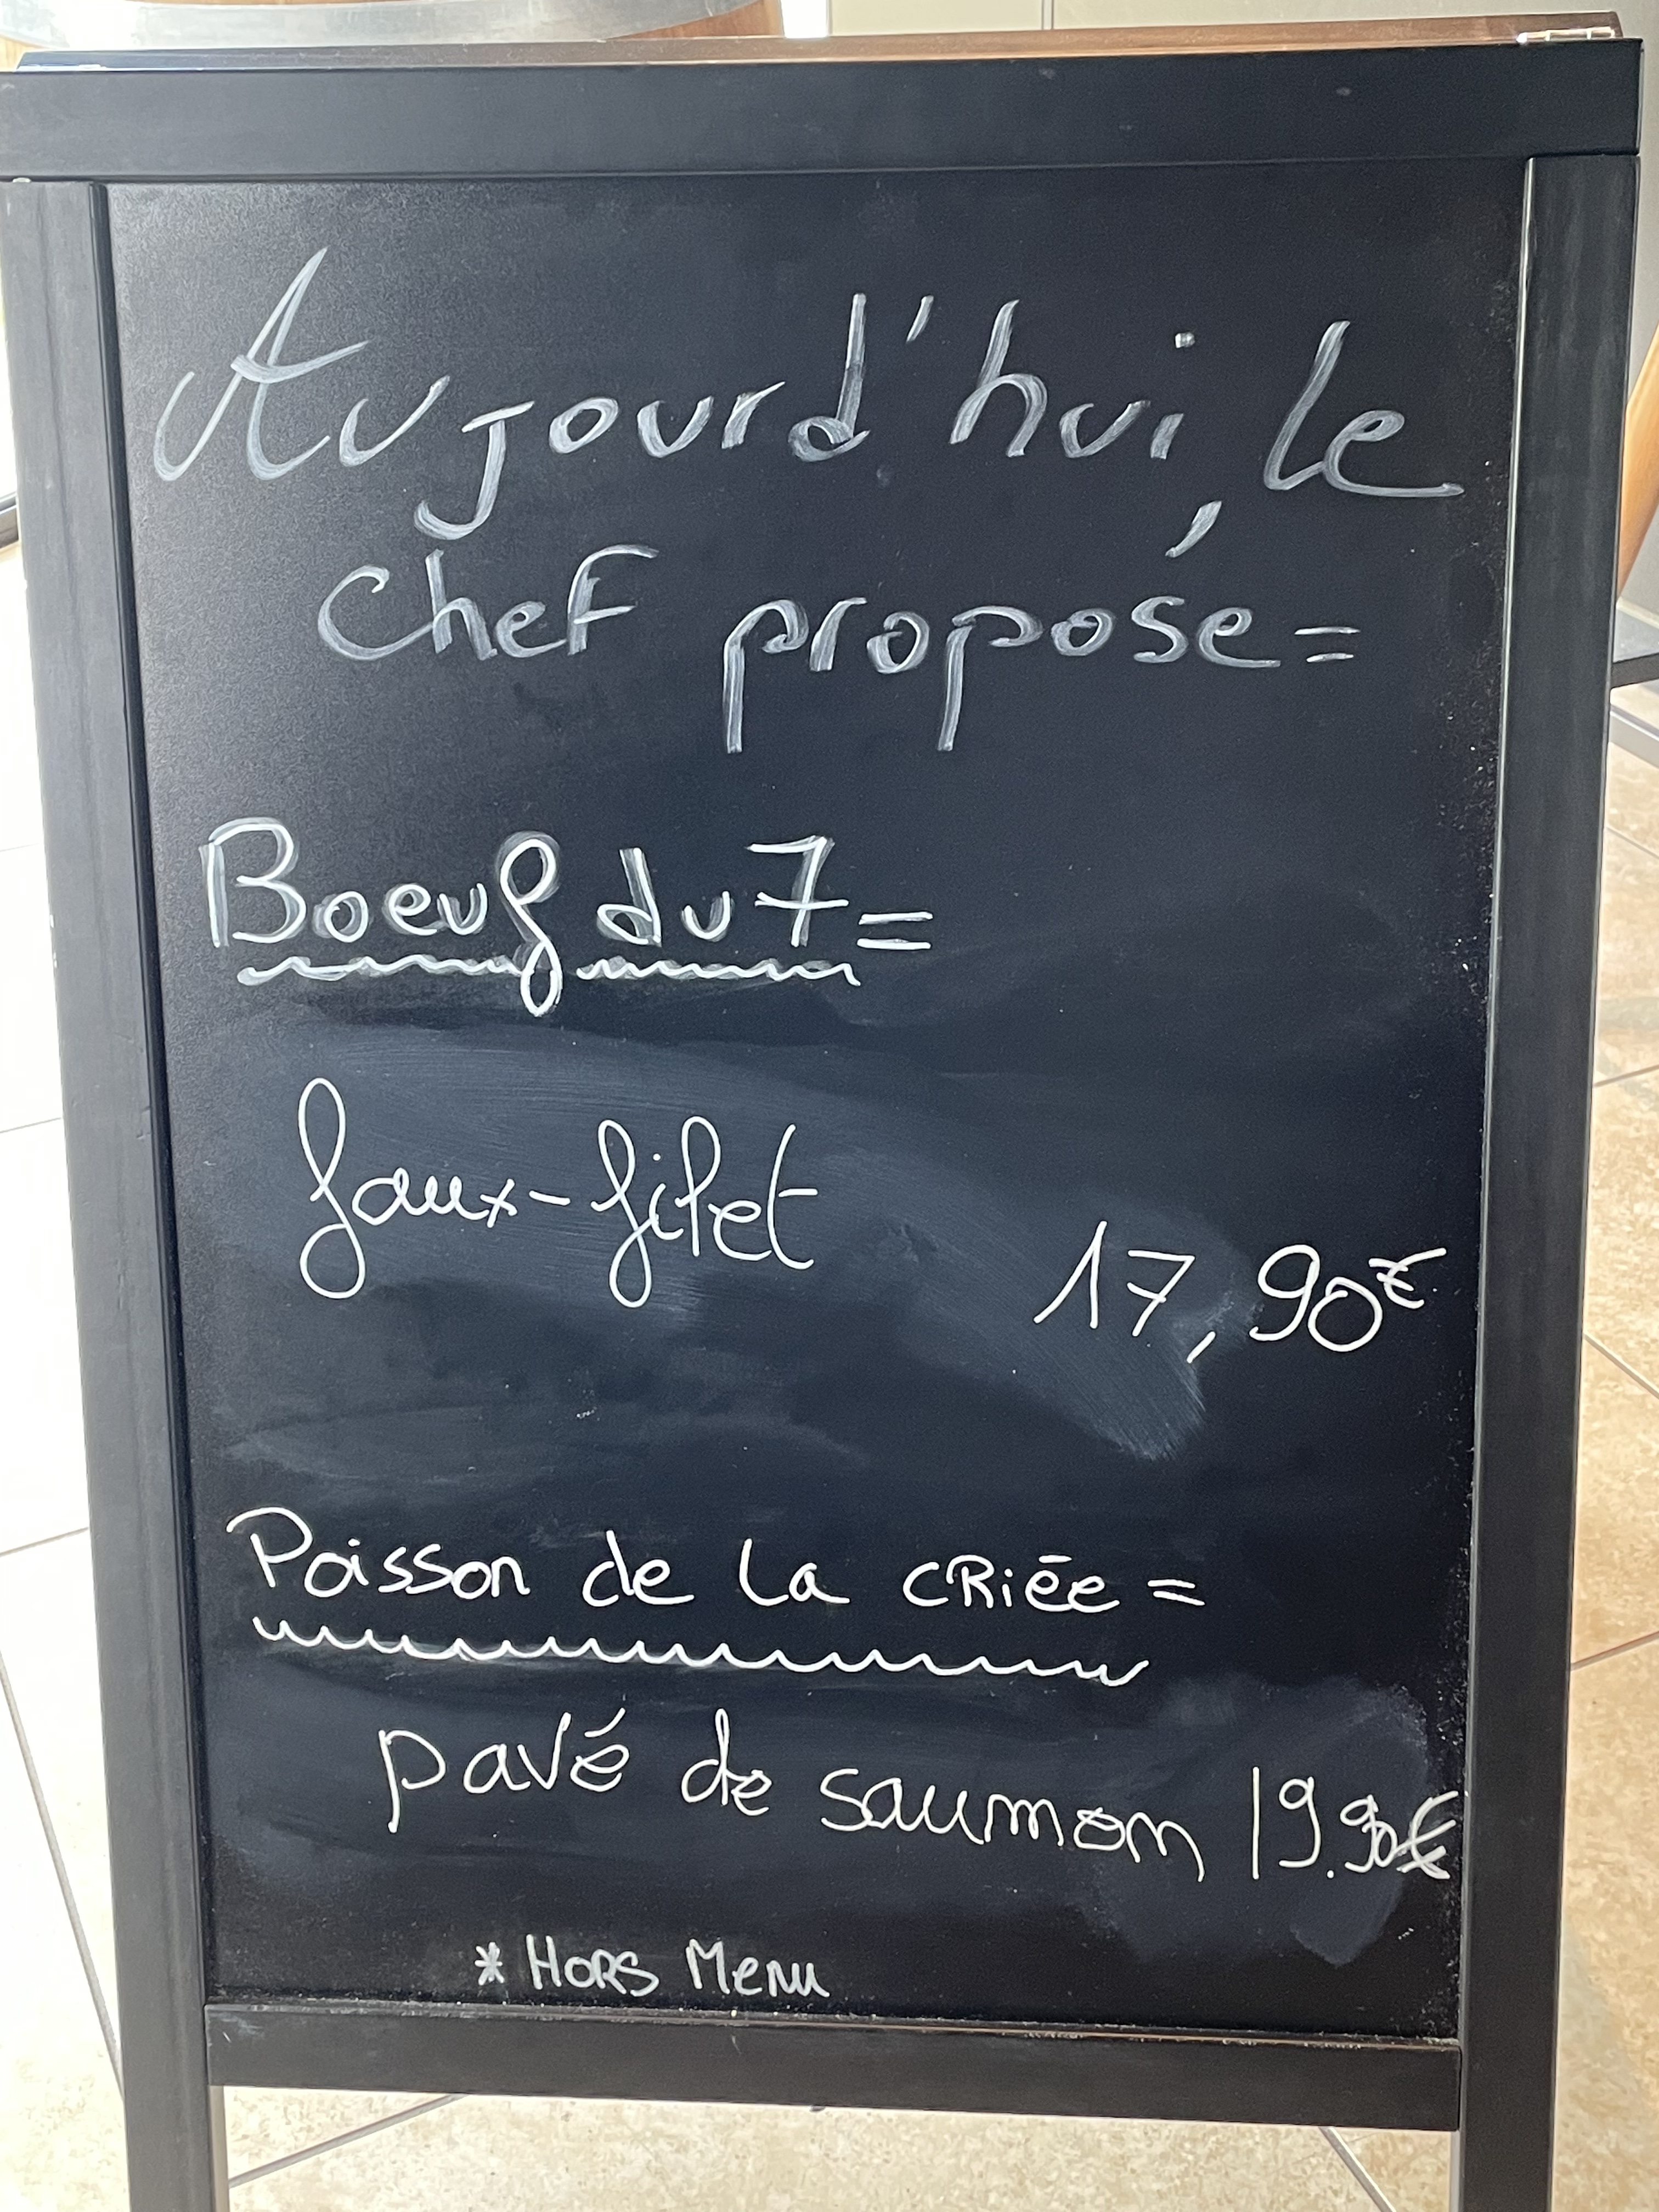 Aujourd'hui, le
chef propose =
Boeuf du 7 =
faux-filet
17,90€
Poisson de la CRiée =
pavé de saumon 19.90€
* HORS Menu